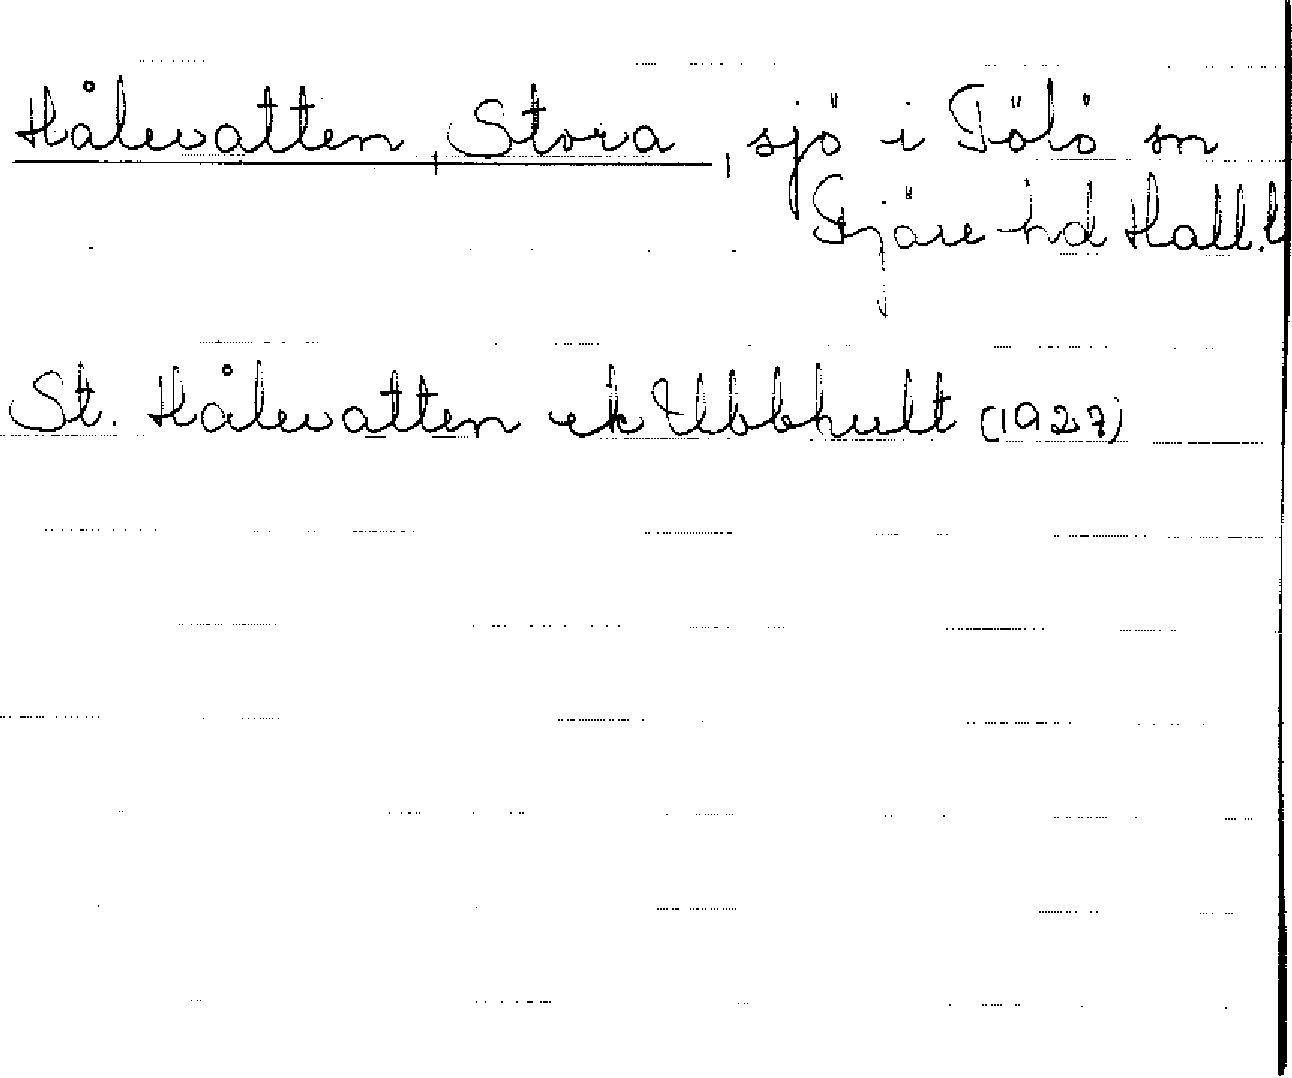 Hålevatten, Stora, sjö i Fölö sn
Fjäre hd Hall. l
St. Hålevatten ek Ubbhult (1927)